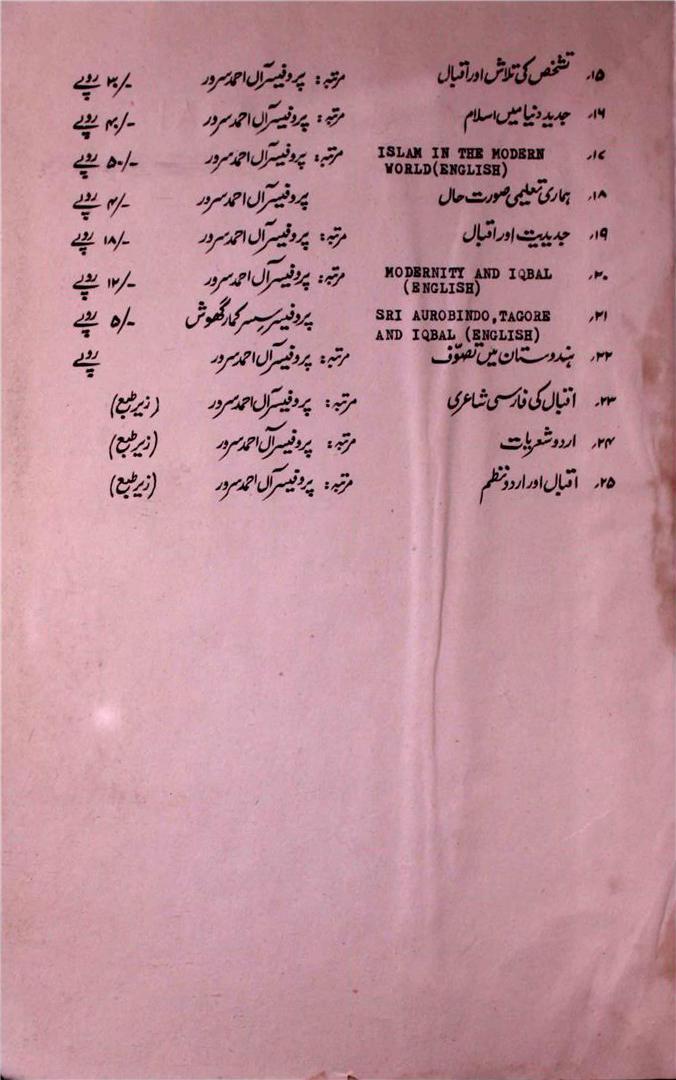 ۱۵۔ تشخص کی تلاش اور اقبال مرتبہ: پروفیسر آل احمد سرور ۳۰/- روپے
۱۶۔ جدید دنیا میں اسلام مرتبہ: پروفیسر آل احمد سرور ۴۰/- روپے
۱۷۔ ISLAM IN THE MODERN مرتبہ: پروفیسر آل احمد سرور ۵۰/- روپے
WORLD(ENGLISH)
۱۸۔ ہماری تعلیمی صورت حال پروفیسر آل احمد سرور ۴/- روپے
۱۹۔ جدیدیت اور اقبال مرتبہ: پروفیسر آل احمد سرور ۱۸/- روپے
۲۰۔ MODERNITY AND IQBAL مرتبہ: پروفیسر آل احمد سرور ۱۲/- روپے
(ENGLISH)
۲۱۔ SRI AUROBINDO,TAGORE پروفیسر سسر کمار گھوش ۵/- روپے
AND IQBAL (ENGLISH)
۲۲۔ ہندوستان میں تصوّف مرتبہ: پروفیسر آل احمد سرور روپے
۲۳۔ اقبال کی فارسی شاعری مرتبہ: پروفیسر آل احمد سرور (زیر طبع)
۲۴۔ اردو شعریات مرتبہ: پروفیسر آل احمد سرور (زیر طبع)
۲۵۔ اقبال اور اردو نظم مرتبہ: پروفیسر آل احمد سرور (زیر طبع)